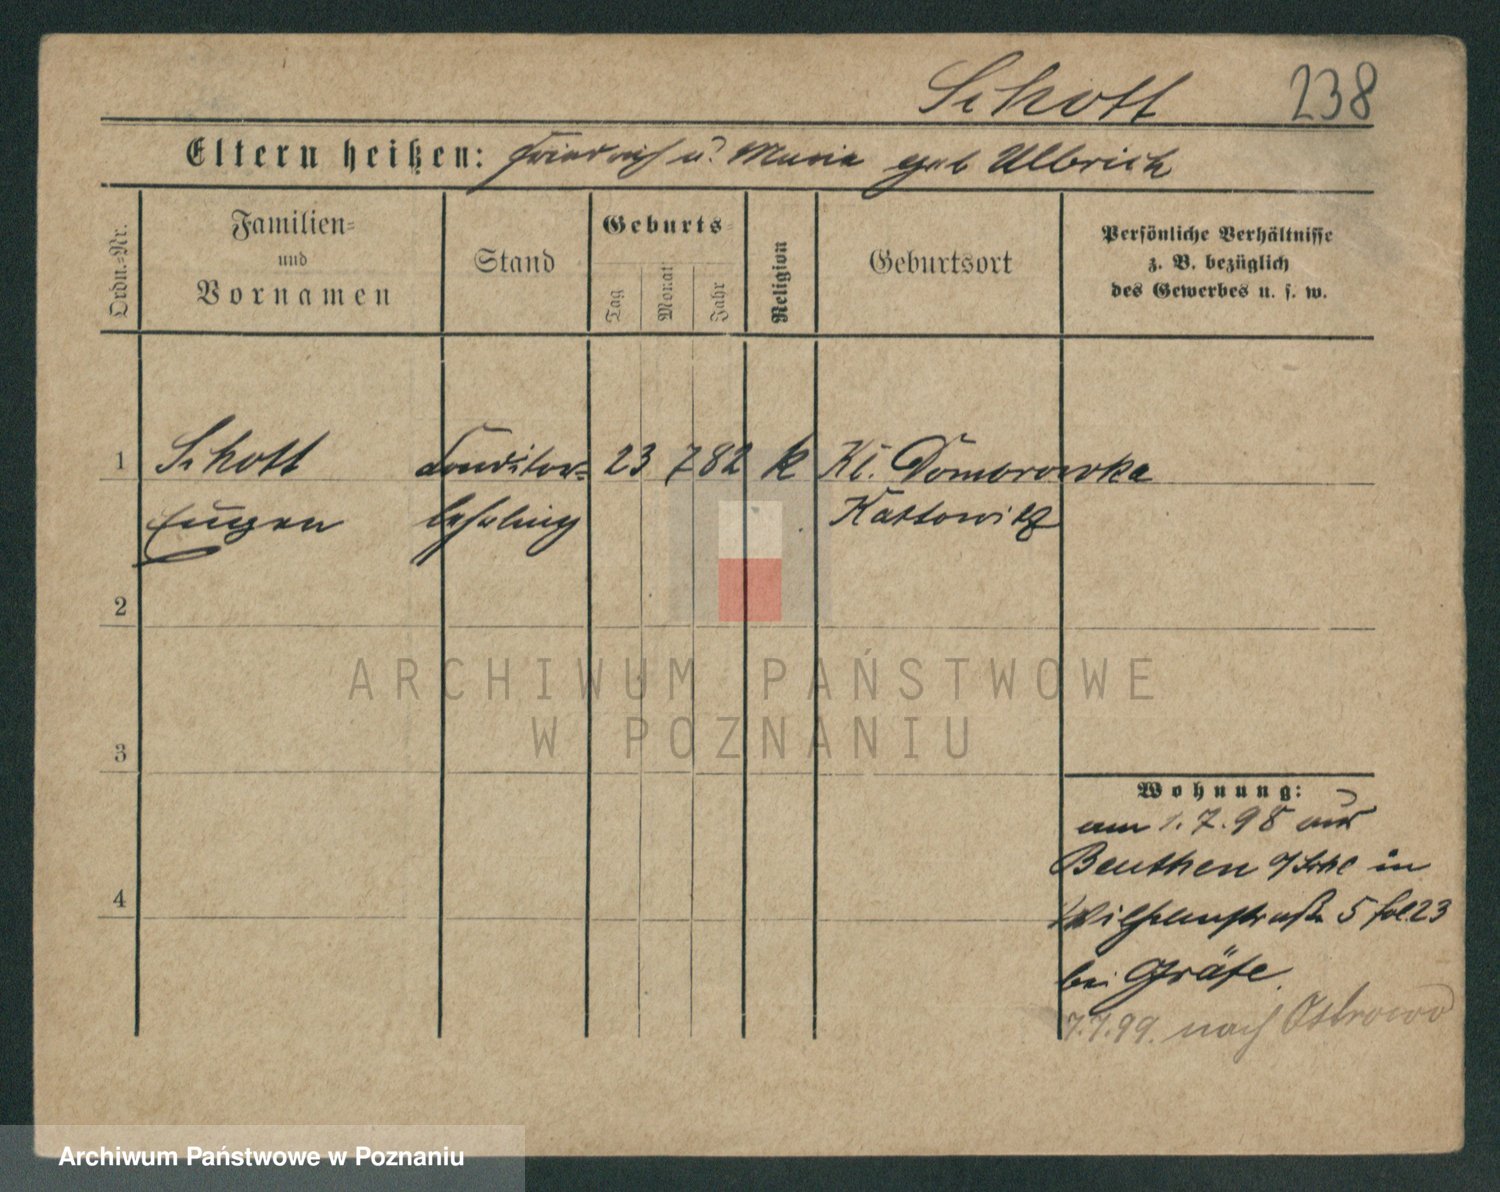 Schott 238
Eltern heißen: Friedrich u. Maria geb Ulbrich
Ordn.-Nr.
Familien-
und
Vornamen
Stand
Geburts-
Tag
Monat
Jahr
Religion
Geburtsort
Persönliche Verhältnisse
z. B. bezüglich
des Gewerbes u. s. w.
1 Schott Conditor- 23 7 82 k Kl. Domorowka
Eugen lehrling Kattowitz
2
3
4
Wohnung:
am 1.7.98 aus
Beuthen o/Schl in
Wilhelmstraße 5 fol.23
bei Gräfe.
7.7.99. nach Ostrowo
ARCHIWUM PAŃSTWOWE
W POZNANIU
Archiwum Państwowe w Poznaniu